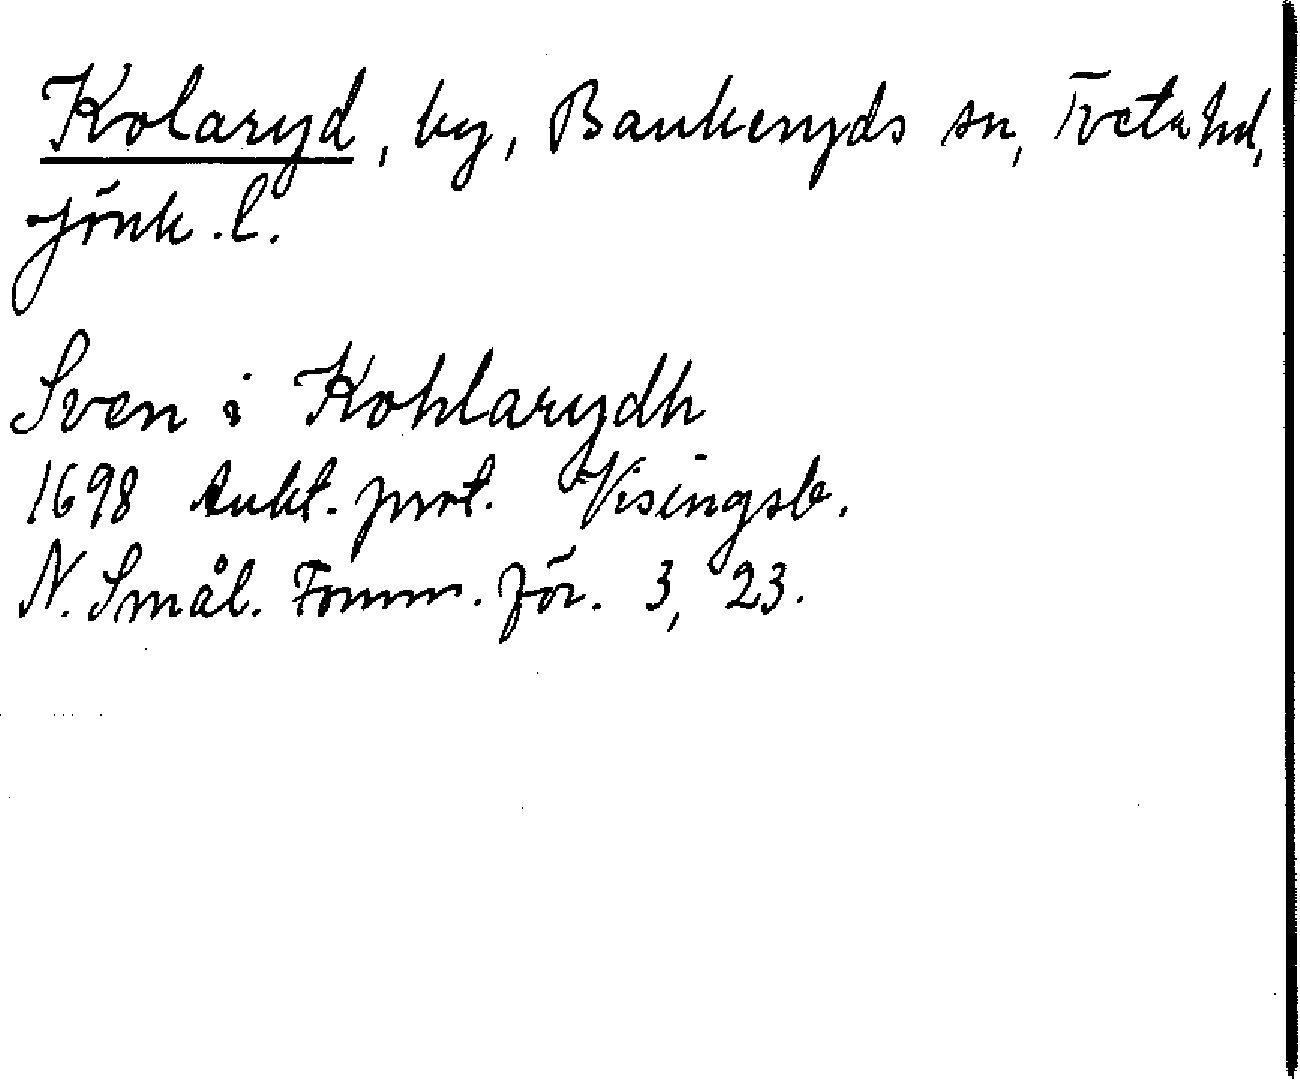 Kolaryd, by, Bankeryds sn, Tveta hd,
Jönk. l.
Sven i Kohlarydh
1698 Aukt. prot. Visingsb.
N. Smål. Fornm. för. 3, 23.